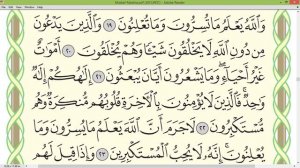 Mushaf Madinah.pdf (SECURED) - Adobe Reader
وَٱللَّهُ يَعْلَمُ مَا تُسِرُّونَ وَمَا تُعْلِنُونَ ١٩ وَٱلَّذِينَ يَدْعُونَ
مِن دُونِ ٱللَّهِ لَا يَخْلُقُونَ شَيْـًٔا وَهُمْ يُخْلَقُونَ ٢٠ أَمْوَٰتٌ
غَيْرُ أَحْيَآءٍ وَمَا يَشْعُرُونَ أَيَّانَ يُبْعَثُونَ ٢١ إِلَٰهُكُمْ إِلَٰهٌ
وَٰحِدٌ فَٱلَّذِينَ لَا يُؤْمِنُونَ بِٱلْـَٔاخِرَةِ قُلُوبُهُم مُّنكِرَةٌ وَهُم
مُّسْتَكْبِرُونَ ٢٢ لَا جَرَمَ أَنَّ ٱللَّهَ يَعْلَمُ مَا يُسِرُّونَ وَمَا
يُعْلِنُونَ إِنَّهُۥ لَا يُحِبُّ ٱلْمُسْتَكْبِرِينَ ٢٣ وَإِذَا قِيلَ لَهُم